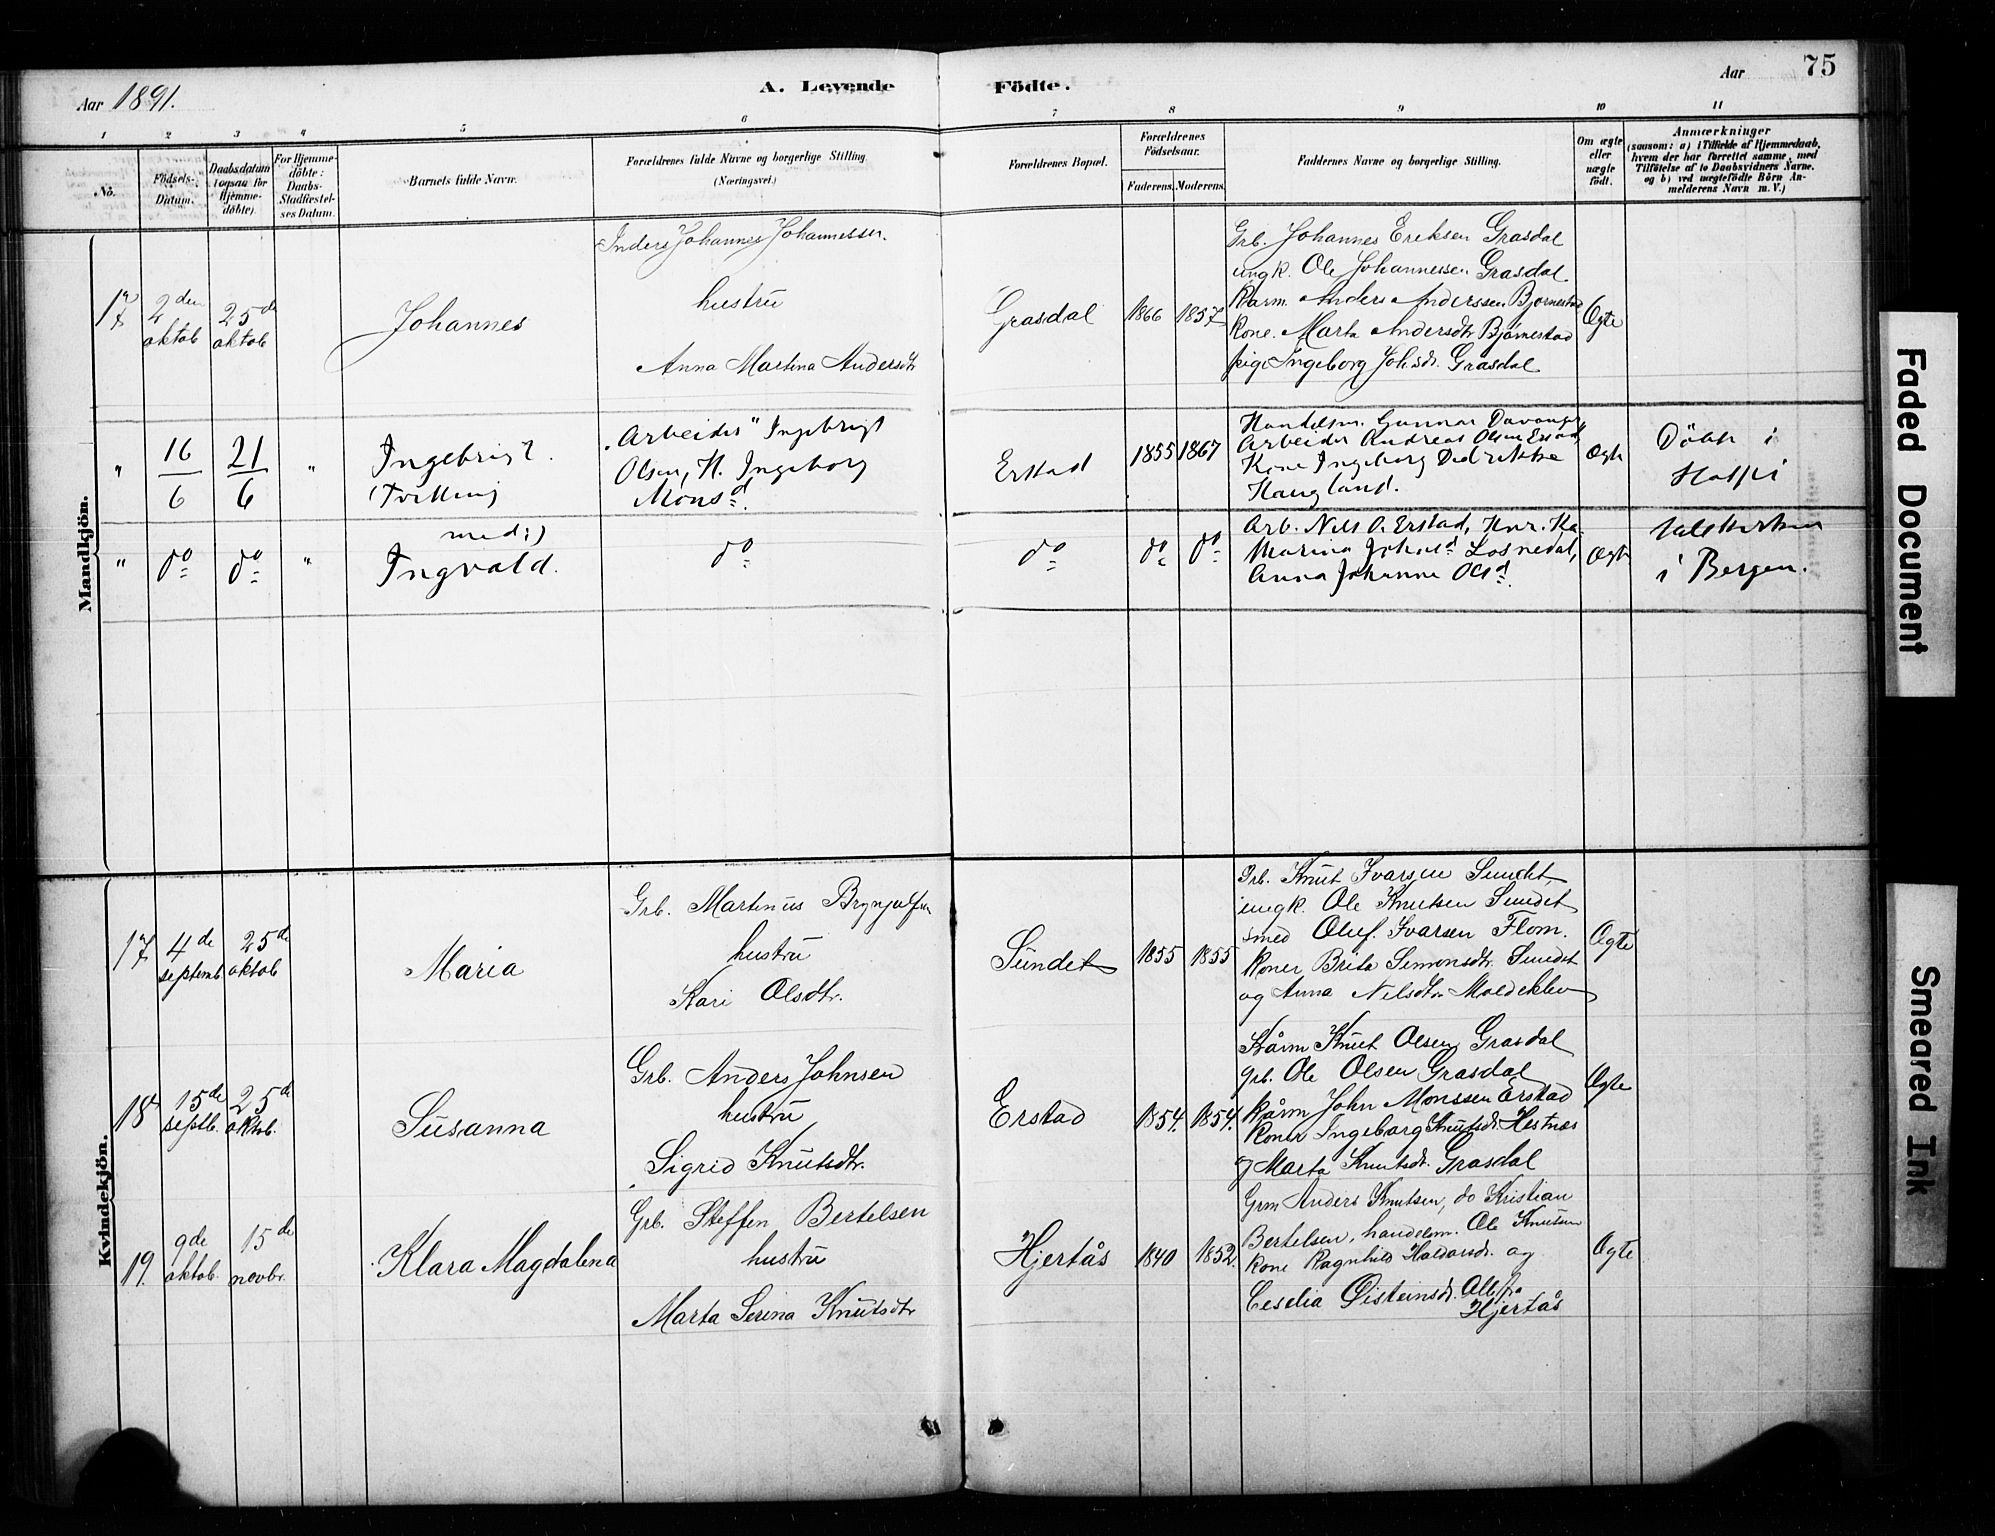 75
Aar 1891.
A. Levende Födte.
Aar
1 2 3 4 5 6 7 8 9 10 11
No.
Födsels-Datum.
Daabsdatum (ogsaa for Hjemme-döbte)
For Hjemme-döbte: Daabs-Stadfæstel-ses Datum.
Barnets fulde Navn.
Forældrenes fulde Navne og borgerlige Stilling (Næringsvei.)
Forældrenes Bopæl.
Forældrenes Födselsaar.
Faderens. Moderens.
Faddernes Navne og borgerlige Stilling.
Om ægte eller uægte födt.
Anmærkninger
(saasom: a) i Tilfælde af Hjemmedaab, hvem der har forrettet samme, med Tilföielse af to Daabsvidners Navne. og b) ved uægtefödte Börn Anmelderens Navn m. V.)
Mandkjön.
17
2den oktob
25de oktob
Johannes
Inders Johannes Johannessen.
hustru
Anna Martina Andersdtr
Grasdal
1866 1857
Grb. Johannes Eriksen Grasdal
ungk. Ole Johannessen Grasdal
Kaarm. Anders Anderssen Bjørnestad
Kone. Marta Andersdtr Bjørnestad
pige Ingeborg Johsdr. Grasdal
Ægte
" 16/6 21/6 "
Ingebrigt.
(Tvilling
"Arbeider" Ingebrigt
Olsen, H. Ingeborg
Monsd.
Erstad
1855 1867
Handelsm. Gunnar Davanger
Arbeider Andreas Olsen Erstad
Kone Ingeborg Dedrikke
Haugland.
Ægte
Döbt i
" do do "
med:)
Ingvald.
do do do do
Arb. Nils O. Erstad, Knr. Ka.
Marina Johasd Losnedal,
Anna Johanne Olsd.
Ægte
i Bergen.
Kvindekjön.
17
4de septemb
25de oktob
Maria
Grb. Martinus Brynjulfsen
hustru
Kari Olsdtr.
Sundet
1855 1855
Grb. Knut Ivarsen Sundet,
ungk. Ole Knutsen Sundet
smed Oluf. Ivarsen Flom.
Koner Brita Simonsdtr. Sundet
og Anna Nilsdtr Moldeklev
Ægte
18
15de septb.
25de oktob.
Susanna
Grb. Anders Johnsen
hustru
Sigrid Knutsdtr.
Erstad
1854. 1854.
Kårm Knut Olsen Grasdal
grb. Ole Olsen Grasdal
Kårm John Monssen Erstad
Koner Ingeborg Knutsdr. Hestnes
og Marta Knutsdr. Grasdal
Ægte
19.
9de oktob.
15de novbr.
Klara Magdalena
Grb. Steffen Bertelsen
hustru
Marta Serina Knutsdtr
Hjertås
1840 1852.
Grm Anders Knutsen, do Kristian
Bertelsen, handelsm. Ole Knutsen
Kone Ragnhild Haldorsdr. og
Ceselia Øisteinsdr. Alle fra
Hjertås
Ægte
Faded Document
Smeared Ink